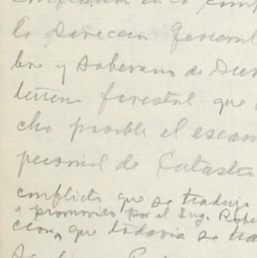 la Direccion General
bre y Soberano de Dur
terreno forestal que
cho posible el escam
personal de Catastro
conflicto que se tradujo
a promovido por el Ing. Robe
cion, que todavia se tra